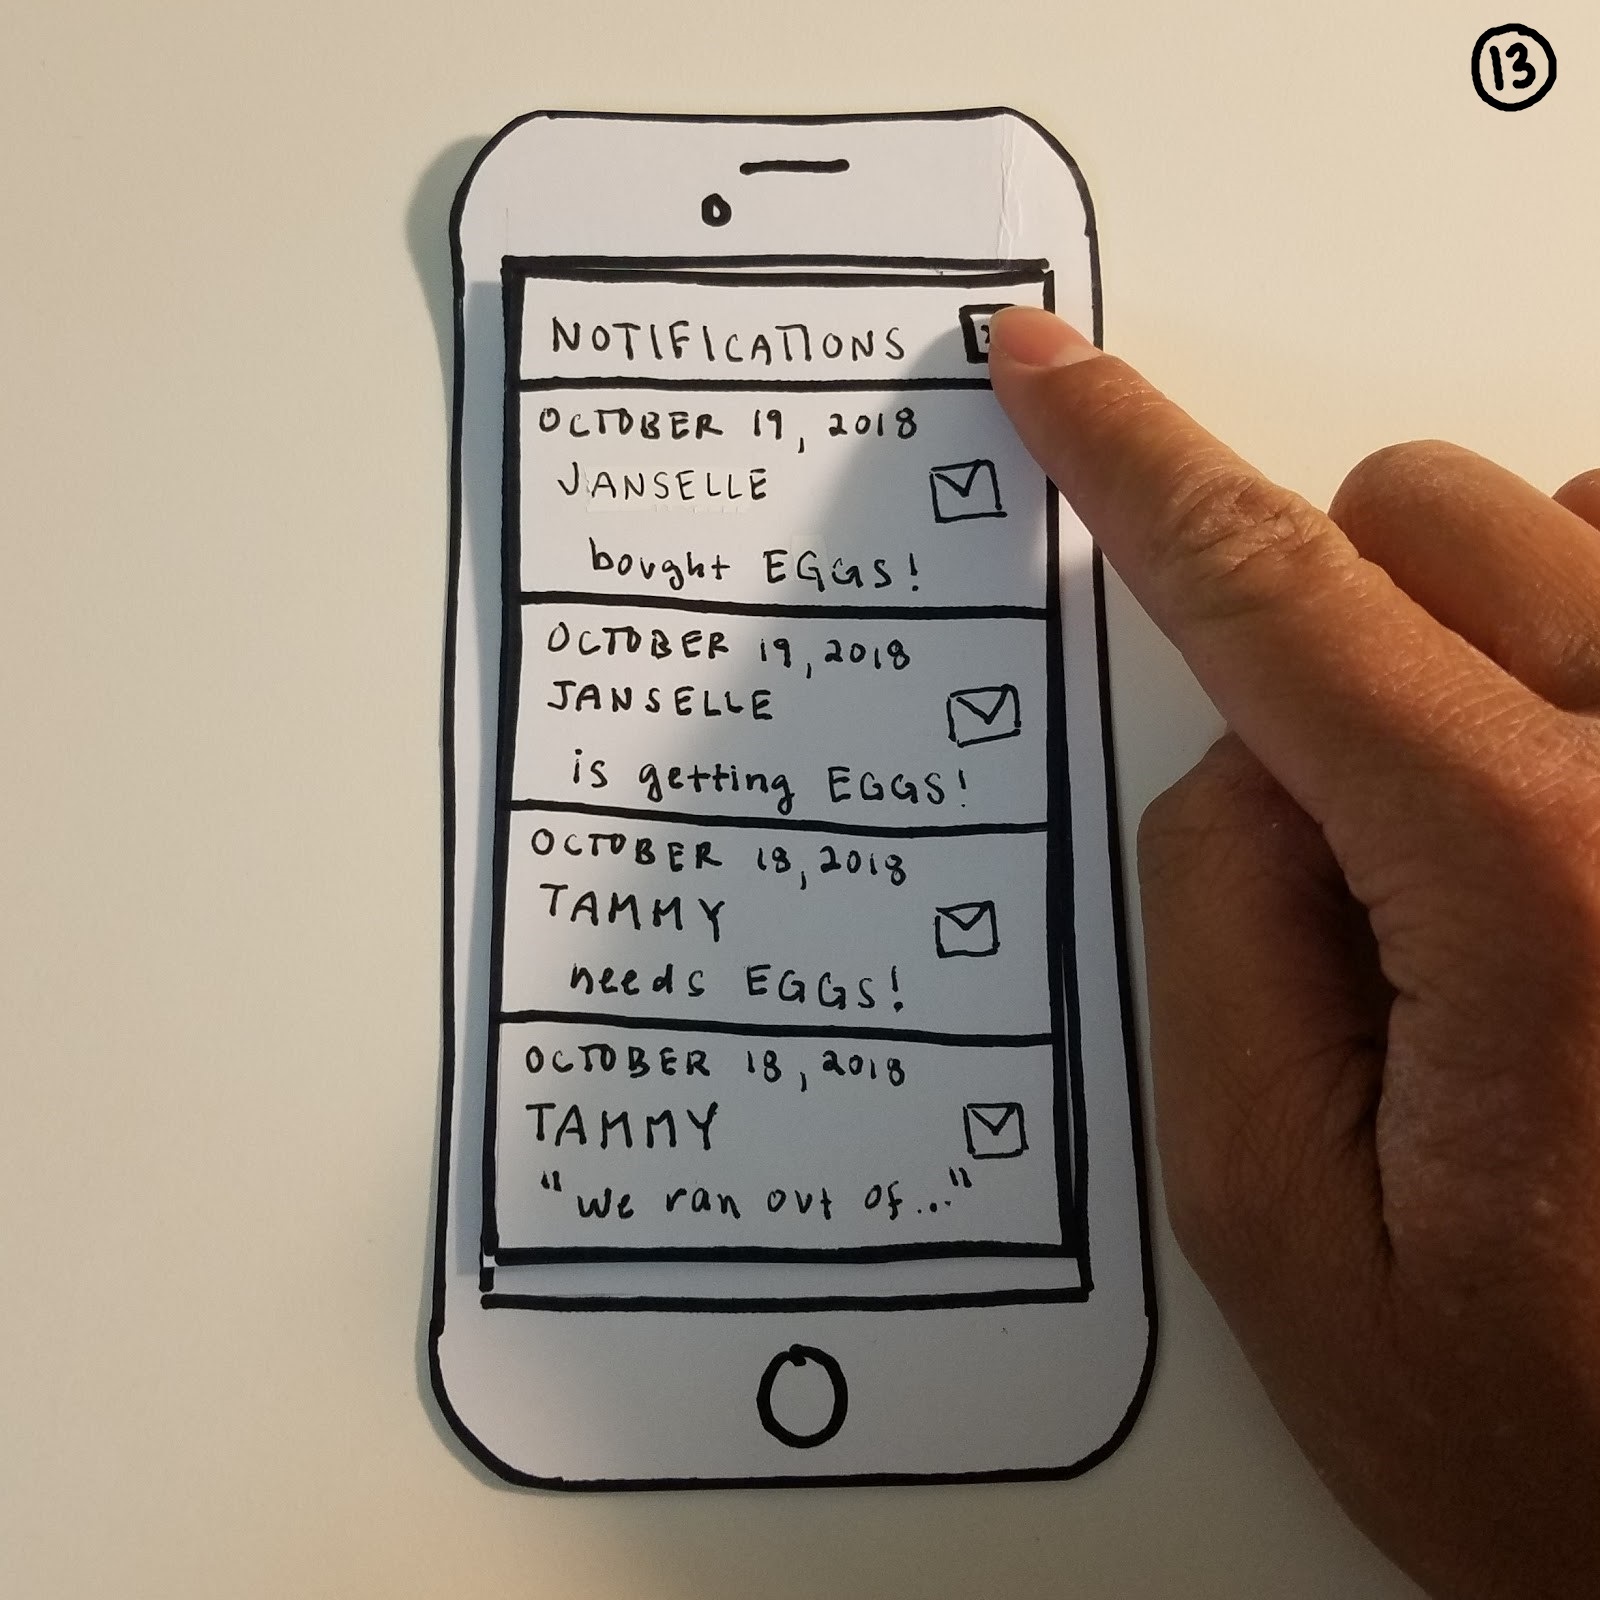 13
NOTIFICATIONS
OCTOBER 19, 2018
JANSELLE
bought EGGS!
OCTOBER 19, 2018
JANSELLE
is getting EGGS!
OCTOBER 18, 2018
TAMMY
needs EGGS!
OCTOBER 18, 2018
TAMMY
"we ran out of..."